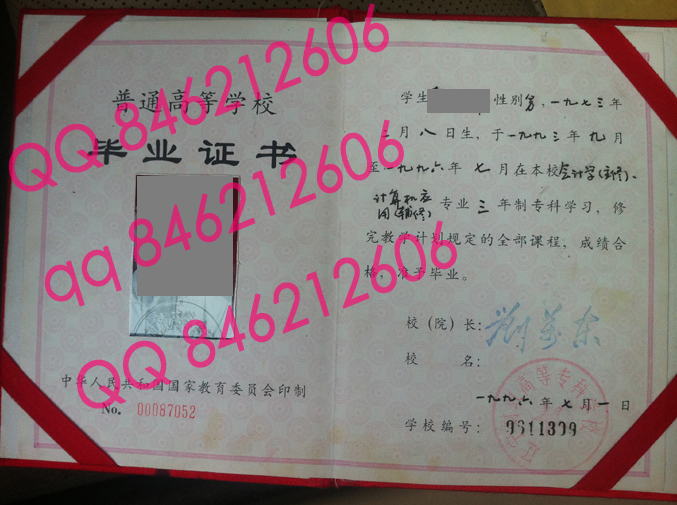 普通高等学校
毕业证书
中华人民共和国国家教育委员会印制
No. 00087052
QQ 846212606
qq 846212606
QQ 846212606
学生 性别男,一九七三年
二月八日生,于一九九三年九月
至一九九六年七月在本校会计学(主修)、
计算机应用(辅修)专业三年制专科学习,修
完教学计划规定的全部课程,成绩合
格,准予毕业。
校(院)长:
校名:
一九九六年七月一日
学校编号:9611309